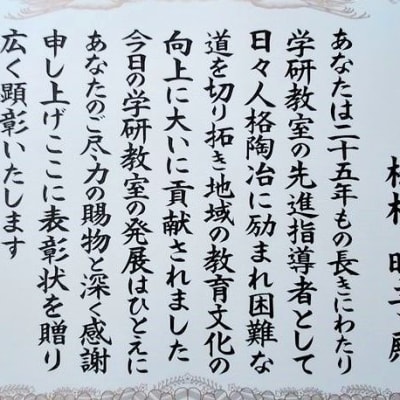 殿
あなたは二十五年もの長きにわたり
学研教室の先進指導者として
日々人格陶冶に励まれ困難な
道を切り拓き地域の教育文化の
向上に大いに貢献されました
今日の学研教室の発展はひとえに
あなたのご尽力の賜物と深く感謝
申し上げここに表彰状を贈り
広く顕彰いたします